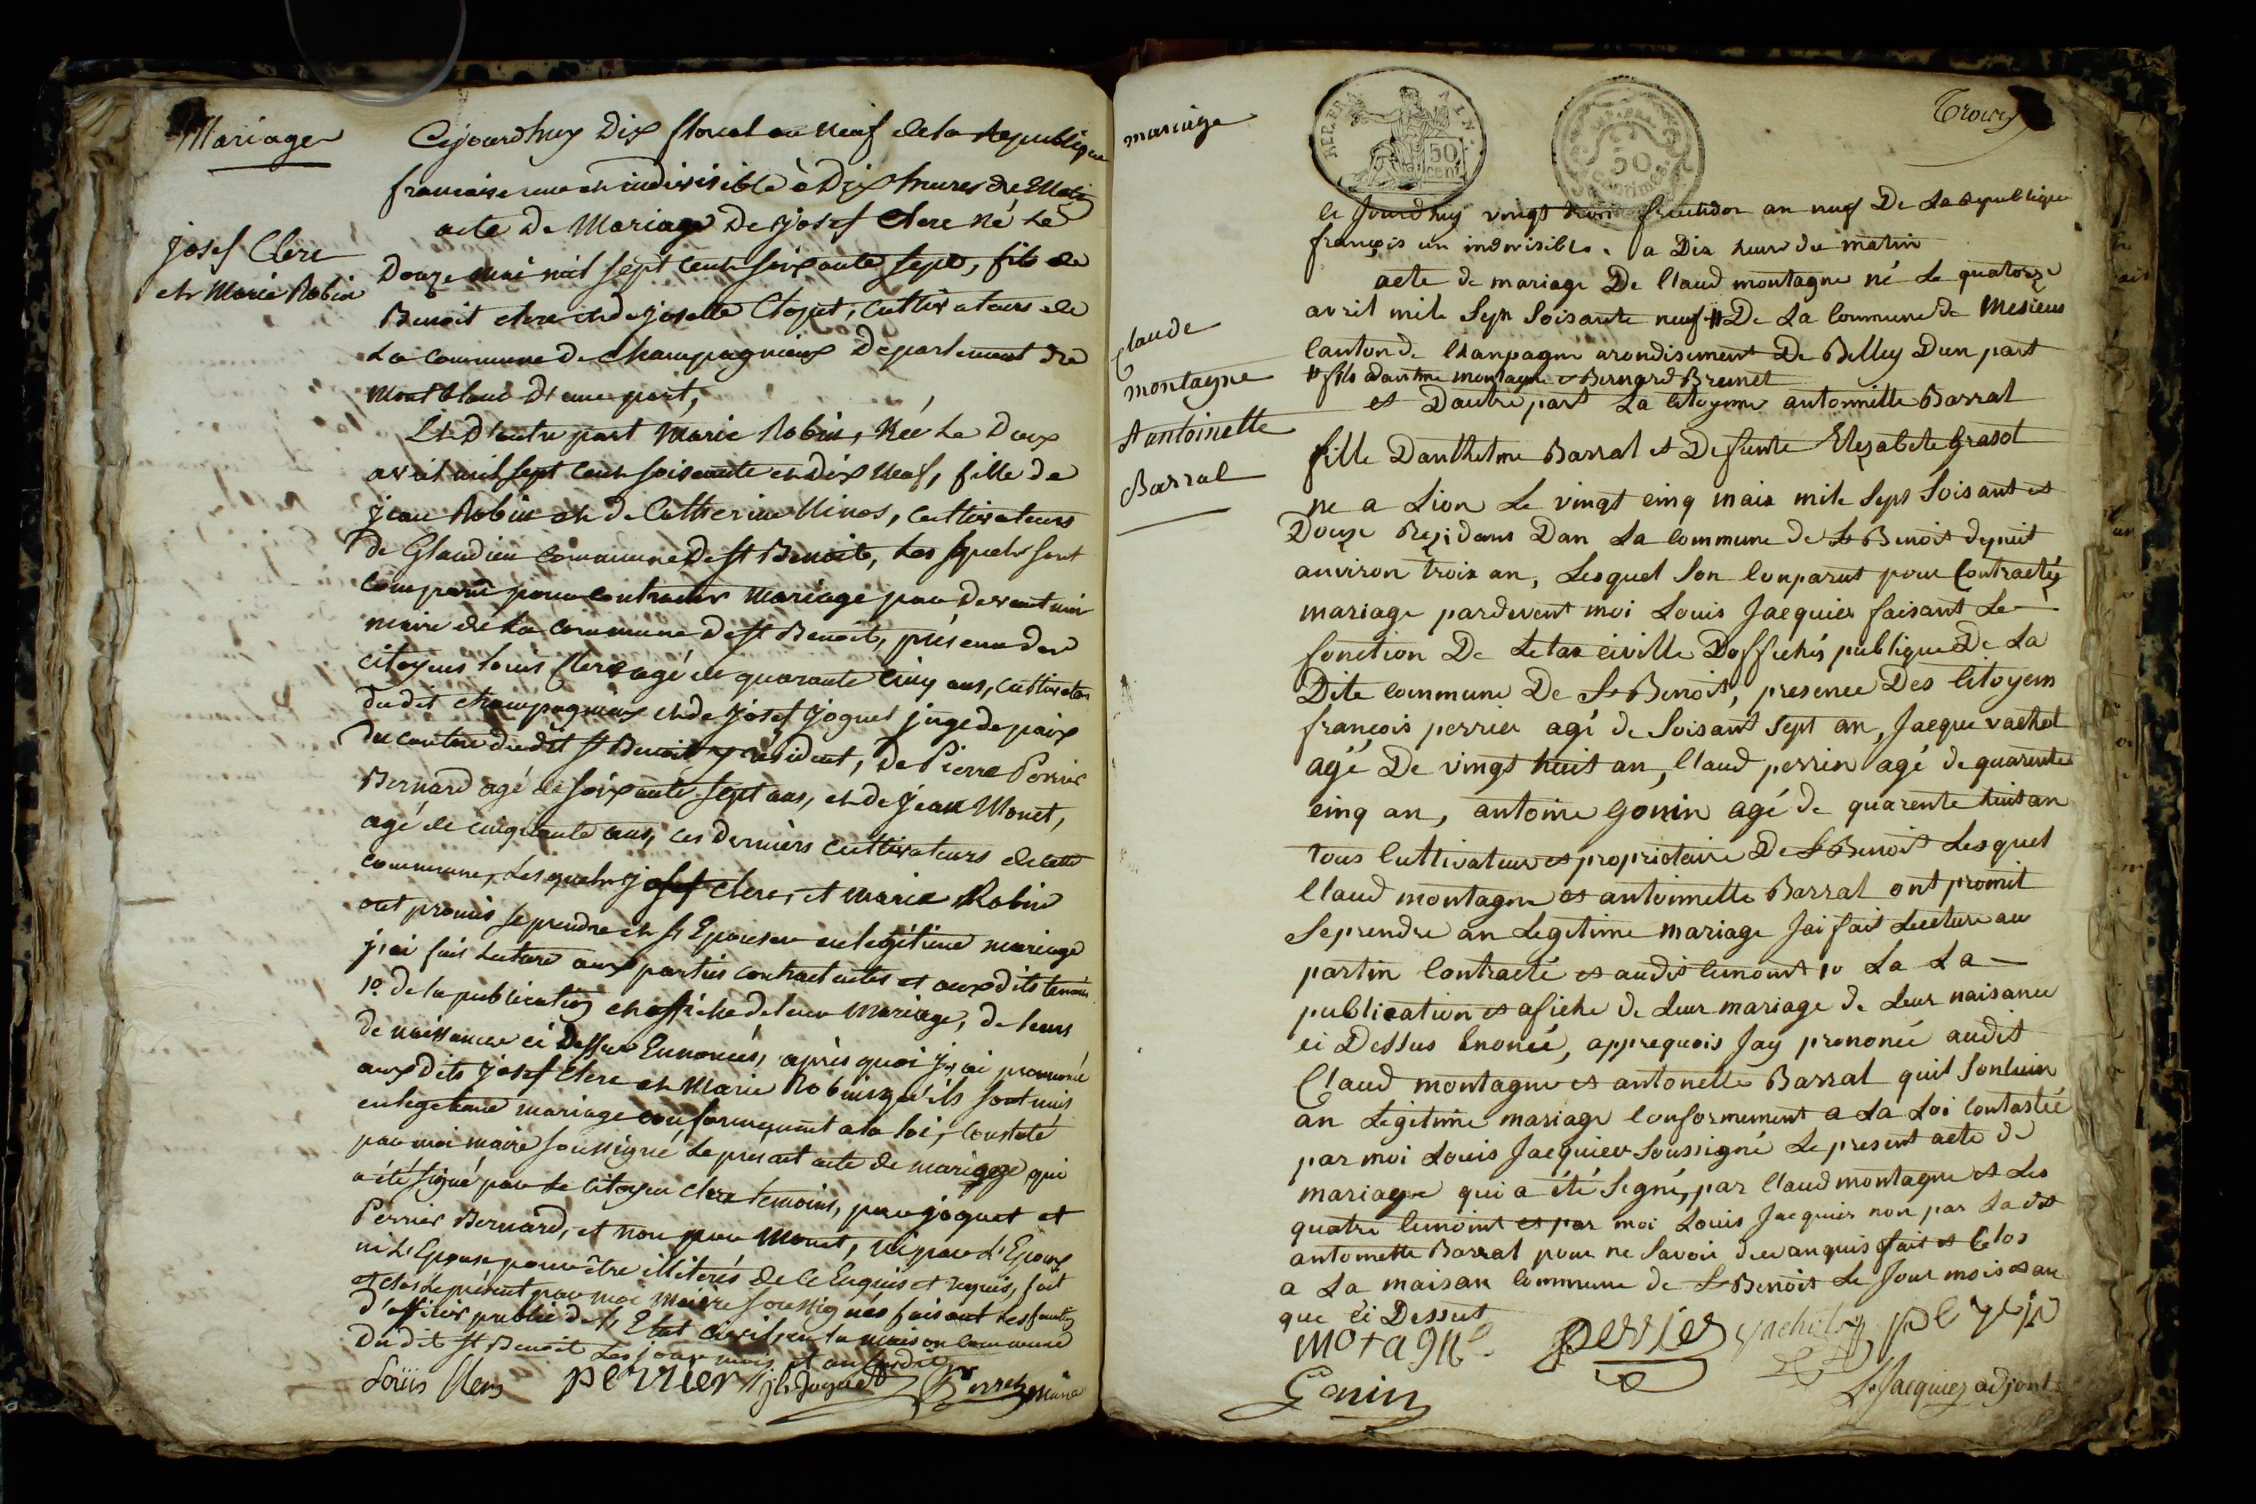 Mariage
Josef Clerc
et Marie Robin
Cejourdhuy Dix floreal an Neuf de la Republique
francaise une et indivisible à Dix heures de Matin
acte de Mariage de Josef Clerc Né Le
Douze mai mil sept cent soixante sept, fils de
Benoit clerc et de josette Cloyet, Cultivateurs de
La commune de champagnieux Departement du
Mont blanc d'une part,
Et D'autre part Marie Robin, Née Le Deux
avril mil sept cent soisente et dix Neuf, fille de
jean Robin et de Catherine Minos, Cultivateurs
de Glandieu commune De St Benoit, Les quels sont
comparu pour contracter Mariage par Devant moi
maire de La commune De St Benoit, présence des
citoyens Louis Clerc agé de quarante cinq ans, Cultivateur
du dit champagnieux et de josef joguet juge de paix
du canton du dit St Benoit y résident, de Pierre Perrier
Bernard agé de soixante sept ans, et de jean Monet,
agé de cinquante ans, ces Derniers cultivateurs de cette
commune, Les quels josef clerc, et marie Robin
ont promis se prendre et s'Epouser en legitime mariage
j'ai fait Lecture aux parties contractantes et aux dits temoins
1° de la publication et affiche de leur Mariage, de leurs
de naissance ci Dessus Ennoncés, après quoi j'ai prononcé
aux Dits josef Clerc et Marie Robin qu'ils sont unis
en legitime mariage conformement a la loi, Constaté
par moi maire soussigné Le present acte de mariage qui
a été signé par Le Citoyen Clerc temoins, par joguet et
Perrier Bernard, et non par Monet, ni par L'Epoux
ni L'Epouse pour être illiterés de ce Enquis et requis, fait
et clos Le present par moi Maire soussignés faisant Les fonctions
d'officier public de L'Etat Civil, en la maison commune
Du dit St Benoit Les jour mois et an susdit
Loüis Clerc perrier jh Joguet maire
mariage
Claude
montagne
Aantoinette
Barral
REP. FRA
50
cent
50
centimes
Trois
le Jourdhuy vingt trois fructidor an neuf De La Republique
françois un indivisible. a Dix heure du matin
acte de mariage De Claud montagne né Le quatorze
avril mile Sept Soisante neuf # De La Commune de Mesieus
Canton de Chanpagne arondisement De Belley Dun part
# fils danthme montagne et Bernard Brunet
et Dautre part La Citoyenne antonnette Barral
fille Danthelme Barral et Defunte Elezabete Grasot
ne a Lion Le vingt cinq mais mile Sept Soisant et
Douze Rezidans Dan La Commune de St Benoit depuit
anviron trois an, Lesquel Son Conparut pour Contractés
mariage pardevent moi Louis Jacquier faisant Le
fonction De Letat civille Doffichés publique De La
Dite Commune De St Benoit, presence Des Citoyens
françois perrier agé de Soisant Sept an, Jacque vachot
agé De vingt huit an, Claud perrin agé de quarente
cinq an, antoine Gonin agé de quarente huit an
tous Cultivateurs et propriotaire De St Benoit Lesquel
Claud montagne et antoinnette Barral ont promit
Se prendre an Legitime mariage Jai fait Lecture au
partin Contracté et audit temoint 1° La La
publication et afiche de Leur mariage de Leur naisance
ci Dessus Enoncé, apprequois Jay prononcé audit
Claud montagne et antonette Barral quil Sontuin
an Legitime mariage Conformement a La Loi Contastée
par moi Louis Jacquier Soussigné Le present acte de
mariage qui a été Segné, par Claud montagne et Les
quatre temoint et par moi Louis Jacquier non par Ladite
antonnette Barral pour ne Savoir deceanquis fait et Clos
a La maison Commune de St Benoit Le Jour mois et an
que ci Dessut
motagne perrier vachot
Gonin
L. Jacquier adjont